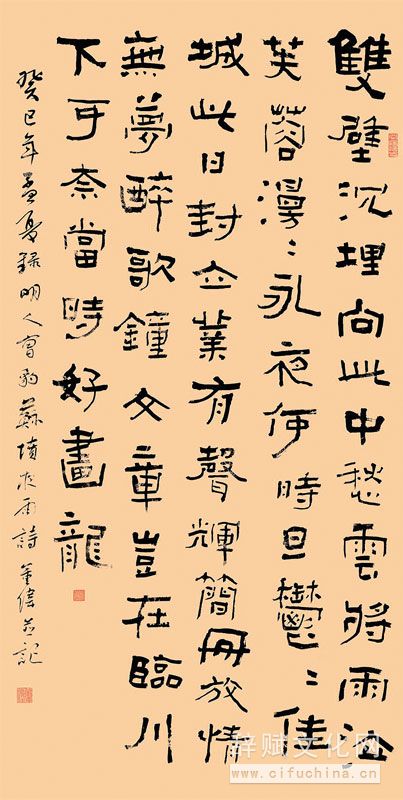 雙璧沉埋向此中愁雲將雨泣
芙蓉漫〻永夜何時旦鬱〻佳
城此日封立業有聲輝簡冊放情
無夢醉歌鐘文章豈在臨川
下可奈當時好畫龍
癸巳年孟夏錄明人豹蘇墳夜雨詩偉並記
辞赋文化网
www.cifuchina.cn